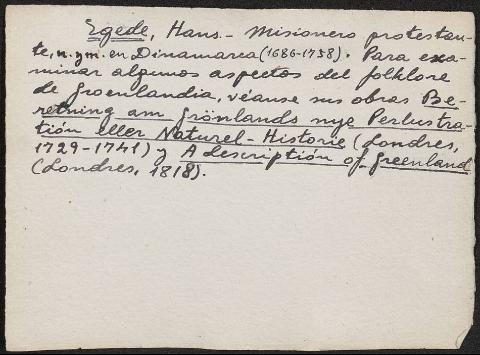 Egede, Hans.- Misionero protestan-
te, n. y m. en Dinamarca (1686-1758). Para exa-
minar algunos aspectos del folklore
de Groenlandia, véanse sus obras Be-
retning am Grönlands nye Perlustra-
tión eller Naturel-Historie (Londres,
1729-1741) y A descriptión of Greenland
(Londres, 1818).